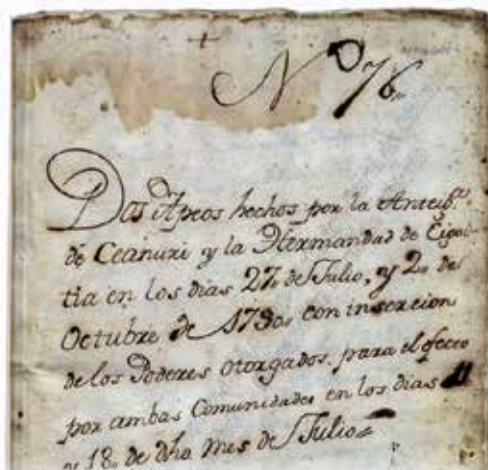 +
Nº 76„
Dos Apeos hechos por la Anteigª
de Ceanuri y la Hermandad de Cigoi-
tia en los dias 27„ de Julio, y 2„ de
Octubre de 1790„ con insercion
de los Poderes otorgados para el efecto
por ambas Comunidades en los dias 11
y 18„ de dho mes de Julio=